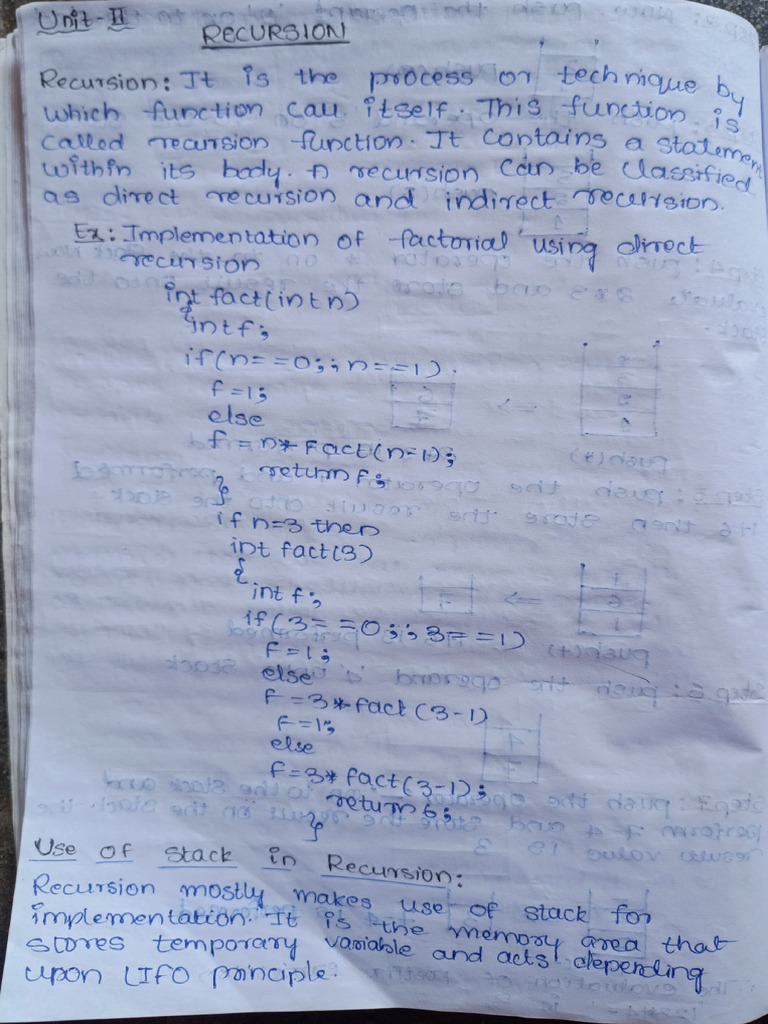 Unit-II
RECURSION
Recursion: It is the process or technique by
which function call itself. This function is
called recursion function. It contains a statement
within its body. A recursion can be classified
as direct recursion and indirect recursion.
Ex: Implementation of factorial using direct
recursion
int fact(int n)
{
int f;
if(n==0;;n==1)
f=1;
else
f=n*fact(n-1);
return f;
}
if n=3 then
int fact(3)
{
int f;
if(3==0;;3==1)
f=1;
else
f=3*fact(3-1)
f=1;
else
f=3*fact(3-1);
return 6;
}
Use of Stack in Recursion:
Recursion mostly makes use of stack for
implementation. It is the memory area that
stores temporary variable and acts depending
upon LIFO principle.